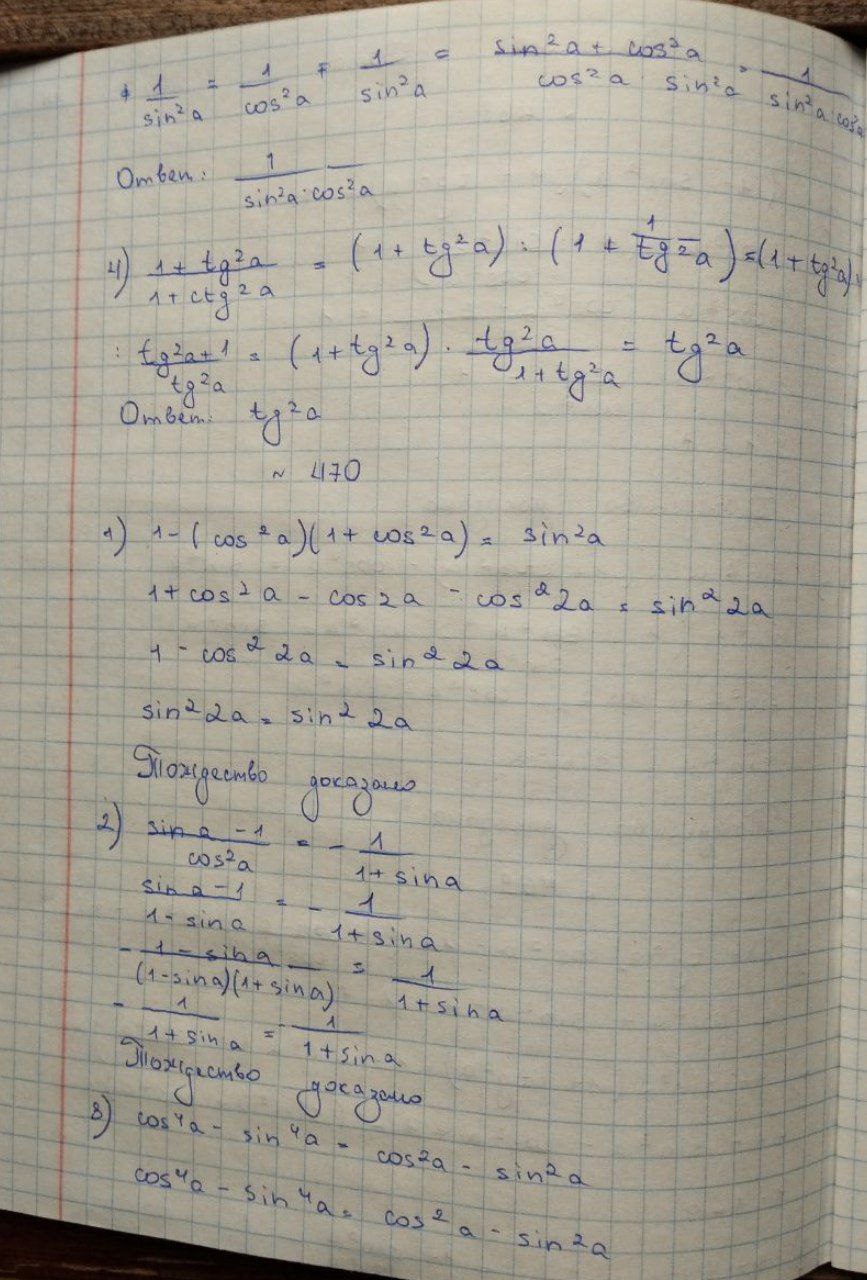 + 1/sin²a = 1/cos²a + 1/sin²a = sin²a + cos²a / cos²a sin²a = 1/sin²a·cos²a
Ответ: 1/sin²a·cos²a
4) 1 + tg²a / 1 + ctg²a = (1 + tg²a) : (1 + 1/tg²a) = (1 + tg²a) :
: tg²a + 1 / tg²a = (1 + tg²a) · tg²a / 1 + tg²a = tg²a
Ответ: tg²a
~ 470
1) 1 - (cos²a)(1 + cos2a) = sin²a
1 + cos²a - cos2a - cos²2a = sin²2a
1 - cos²2a = sin²2a
sin²2a = sin²2a
Тождество доказано
2) sina - 1 / cos²a = - 1 / 1 + sina
sina - 1 / 1 - sina = - 1 / 1 + sina
- 1 - sina / (1 - sina)(1 + sina) = 1 / 1 + sina
- 1 / 1 + sina = - 1 / 1 + sina
Тождество доказано
3) cos⁴a - sin⁴a = cos²a - sin²a
cos⁴a - sin⁴a = cos²a - sin²a